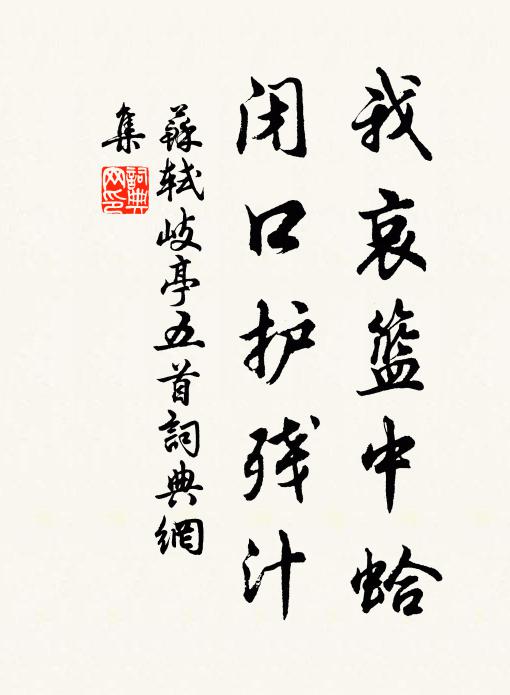 我哀籃中蛤
闭口护残汁
蘇軾岐亭五首詞典網
集
詞典網印